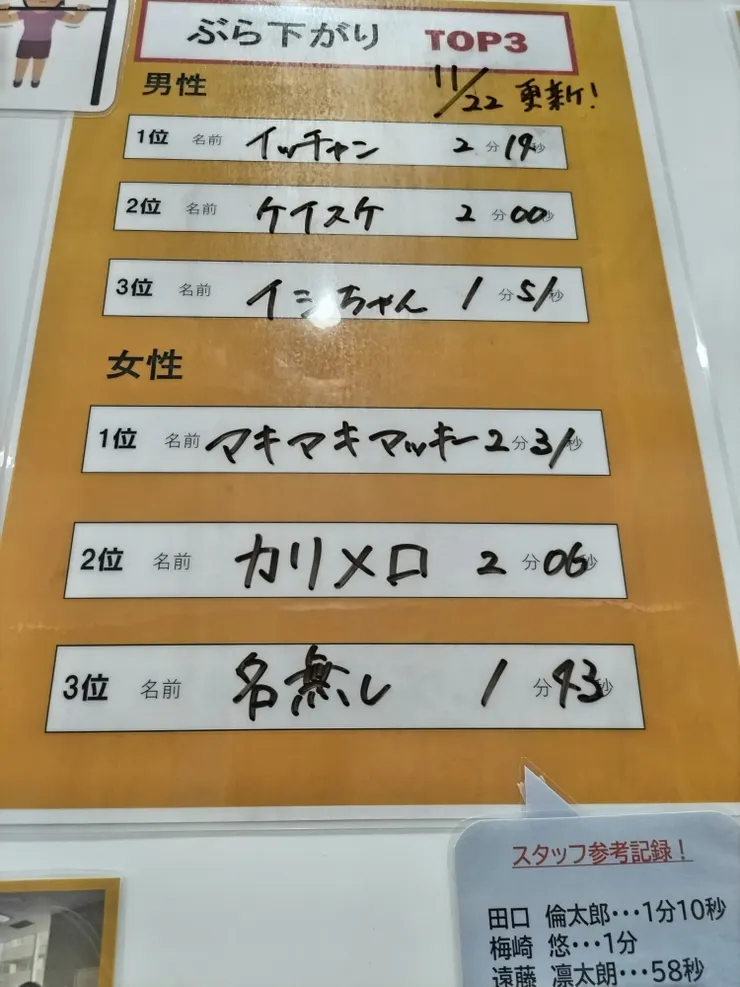 ぶら下がり TOP3
男性 11/22 更新!
1位 名前 イッチャン 2分19秒
2位 名前 ケイスケ 2分00秒
3位 名前 イシちゃん 1分51秒
女性
1位 名前 マキマキマッキー 2分31秒
2位 名前 カリメロ 2分06秒
3位 名前 名無し 1分43秒
スタッフ参考記録!
田口 倫太郎･･･1分10秒
梅崎 悠･･･1分
遠藤 凛太朗･･･58秒